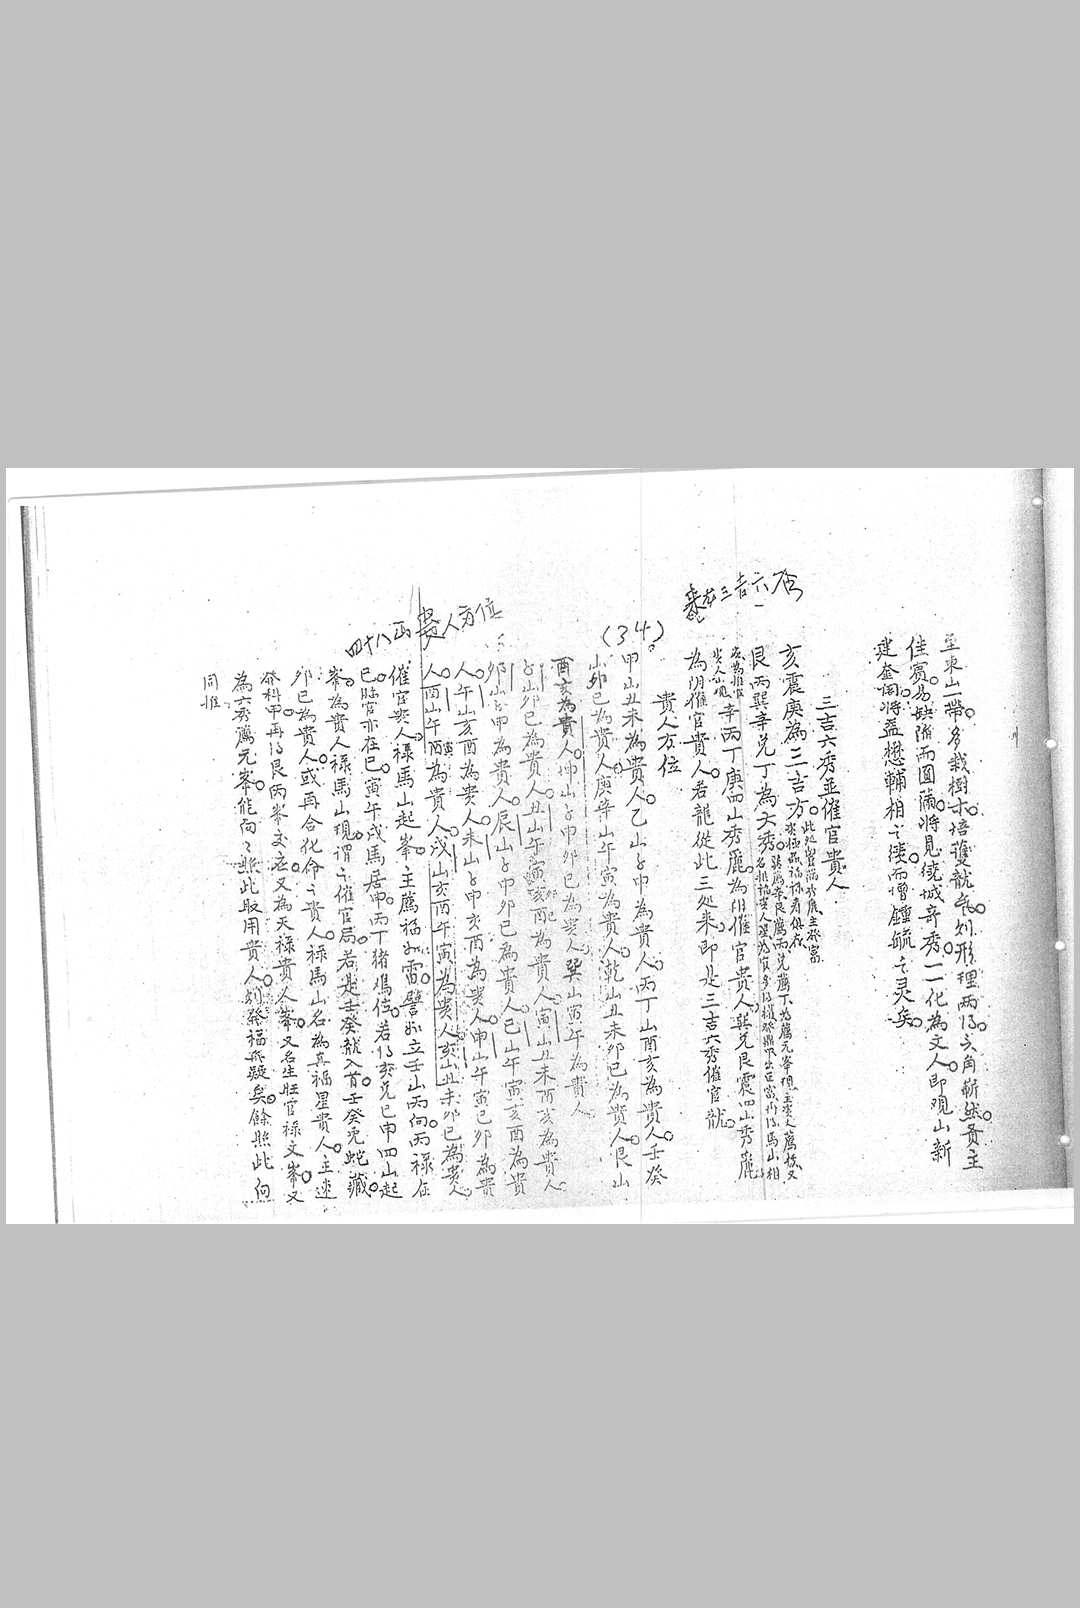 至東山一帶多栽樹木培護龍氣則形理兩得六角嶄然賓主
佳賓易缺陷而圓滿將見繞城奇秀一一化為文人即觀山新
建奎閣將益懋輔相之績而增鍾毓之灵矣
三吉六秀並催官貴人
亥震庚為三吉方
艮丙巽辛兌丁為六秀
辛丙丁庚四山秀麗為催官貴人巽兌艮震四山秀麗
為陰催官貴人若龍從此三处来即是三吉六秀催官龍
三吉六秀
貴人方位
(34)
甲山丑未為貴人乙山子申為貴人丙丁山酉亥為貴人壬癸
山卯巳為貴人庚辛山午寅為貴人乾山丑未卯巳為貴人艮山
酉亥為貴人坤山子申卯巳為貴人巽山寅午為貴人
子山卯巳為貴人丑山午寅亥酉為貴人寅山丑未酉亥為貴人
卯山子申為貴人辰山子申卯巳為貴人巳山午寅亥酉為貴
人午山亥酉為貴人未山子申亥酉為貴人申山午寅巳卯為貴
人酉山午寅為貴人戌山亥酉午寅為貴人亥山丑未卯巳為貴人
貴人方位
四十八局
催官貴人祿馬山起峯主薦福如雷譬如立壬山丙向丙祿在
巳臨官亦在巳寅午戌馬居申丙丁猪鸡位若得亥兌巳申四山起
峯為貴人祿馬山現謂之催官局若是壬癸龍入首壬癸兔蛇藏
卯巳為貴人或再合化命之貴人祿馬山名為真福星貴人主速
發科甲再得艮丙峯交应又為天祿貴人峯又名生旺官祿文峯又
為六秀薦元峯能向々照此取用貴人則發福無疑矣餘照此向
同推